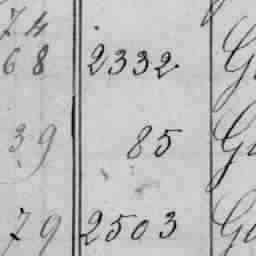 74
68 2332 G
39 85 G
79 2503 G